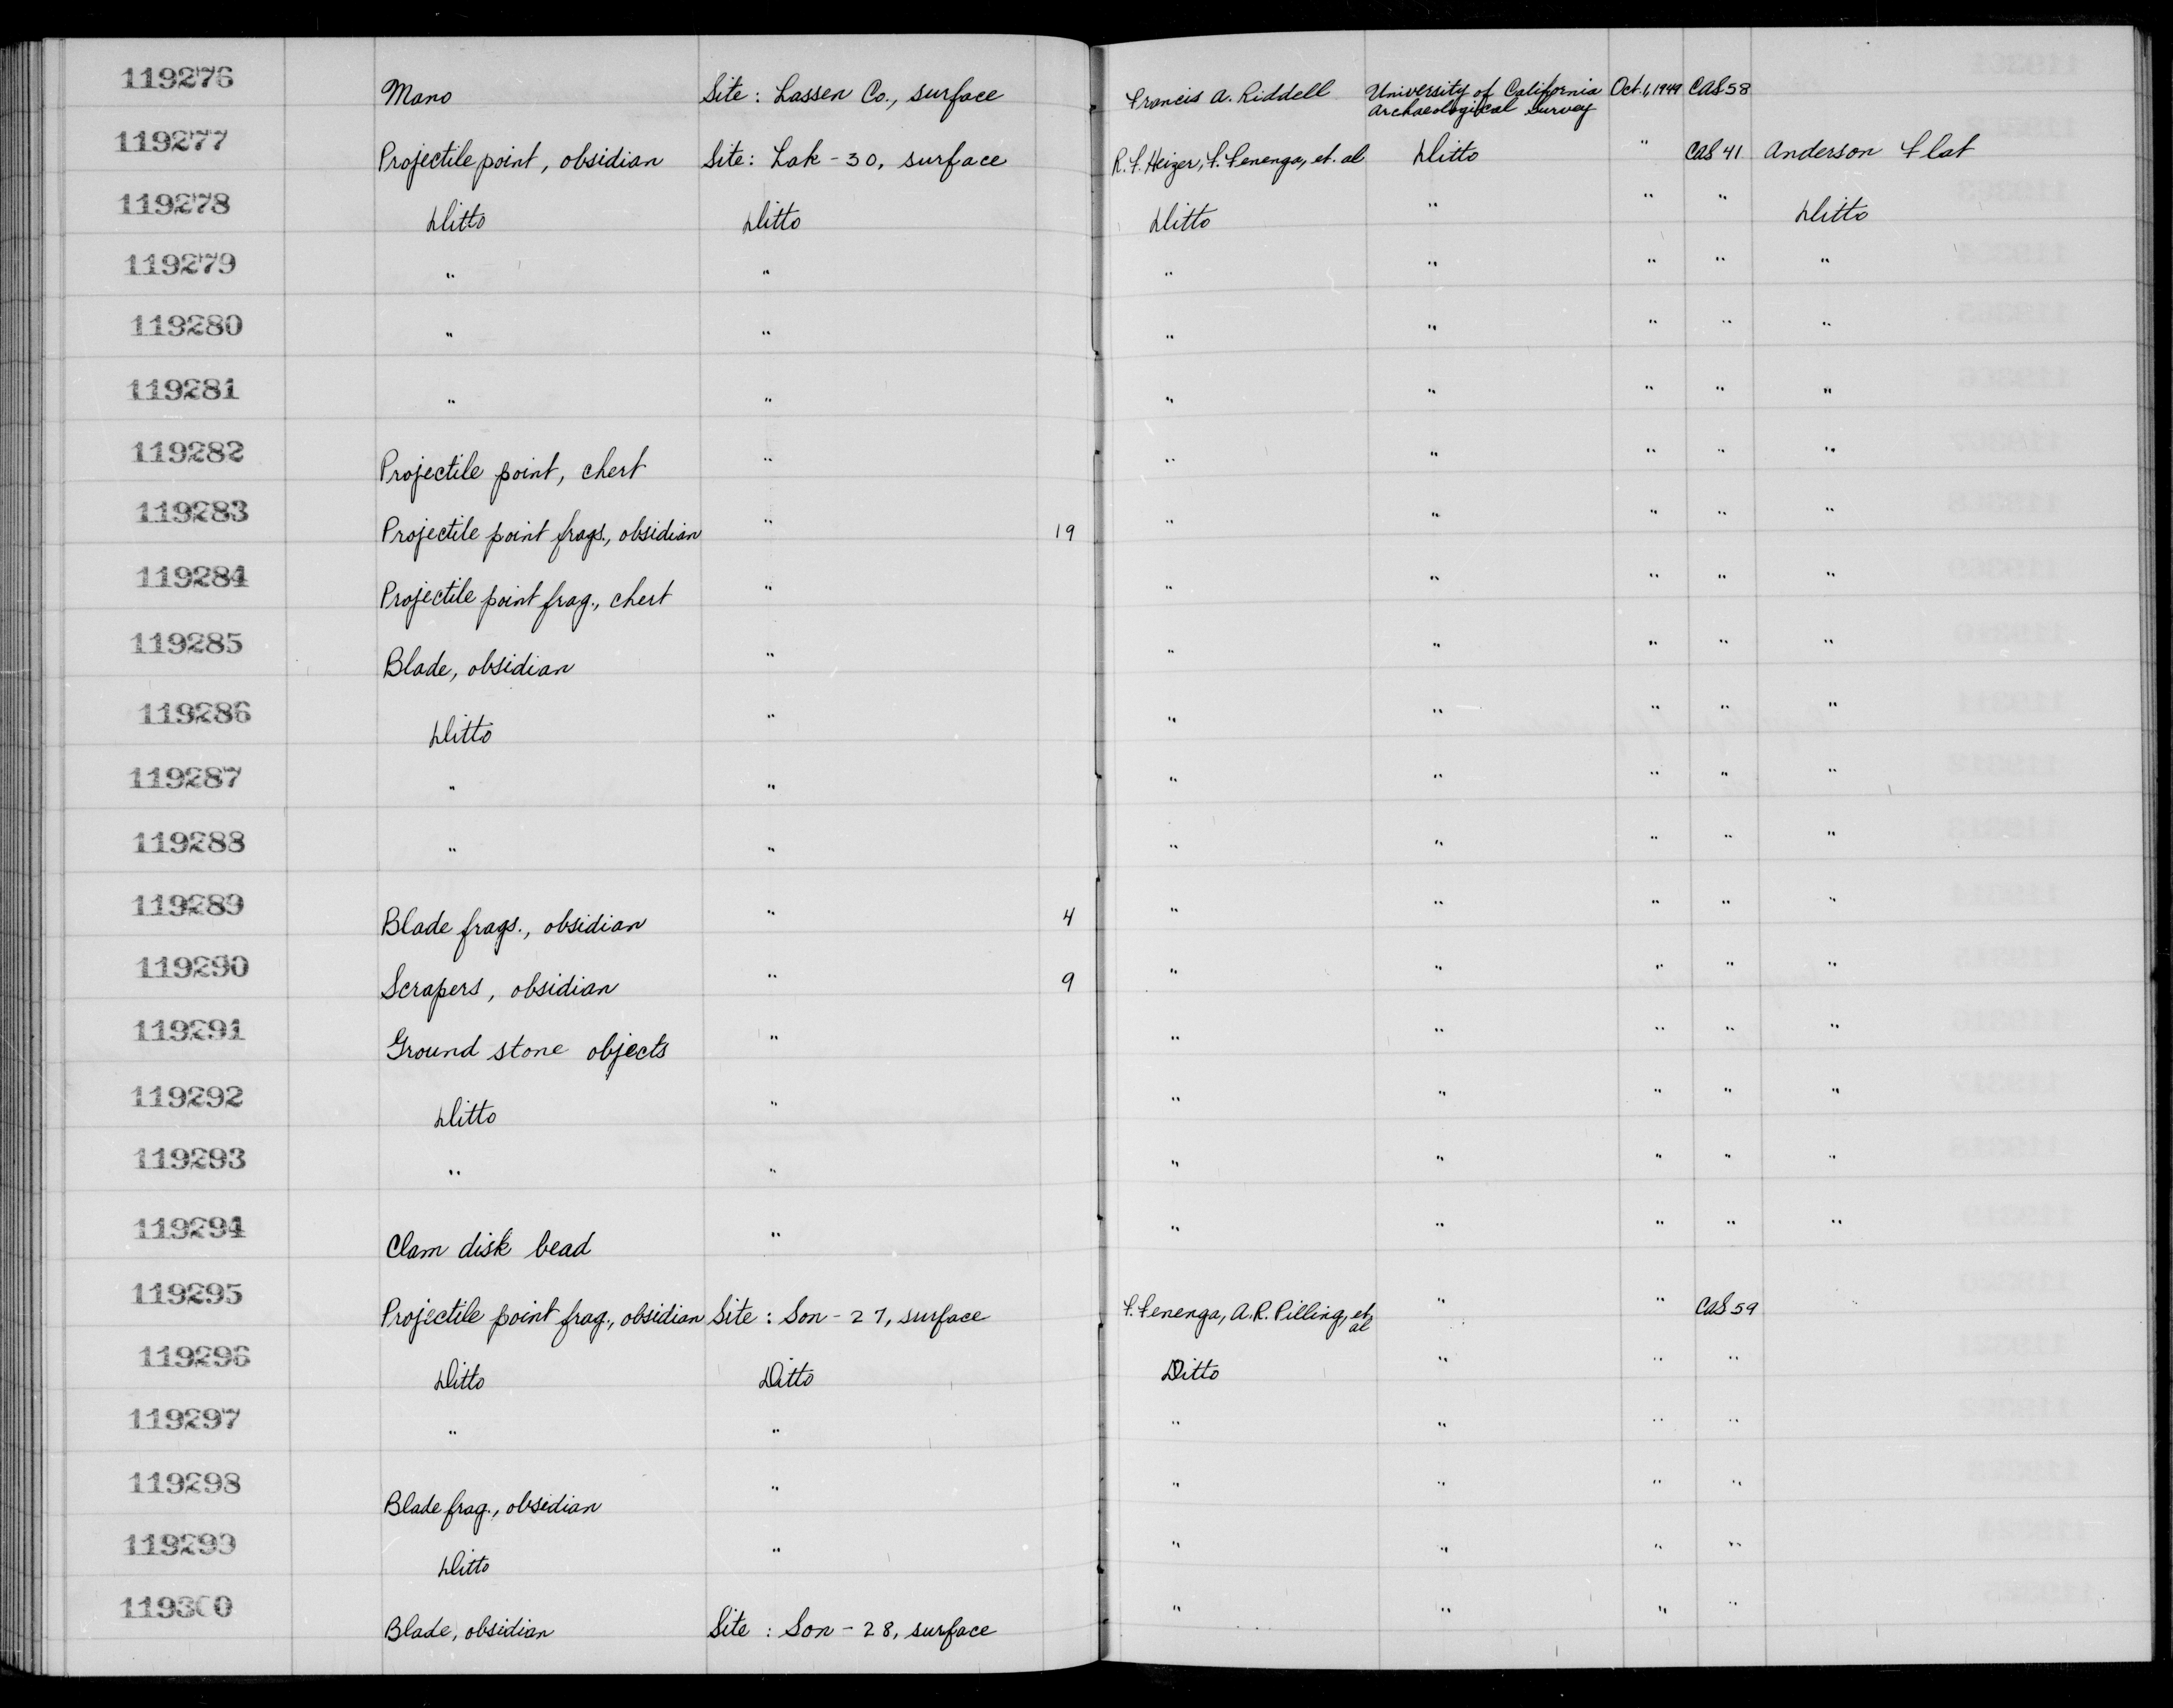 119276 Mano Site: Lassen Co., surface Francis A. Riddell University of California Archaeological Survey Oct. 1, 1949 CAS 58
119277 Projectile point, obsidian Site: Lak-30, surface R. F. Heizer, F. Fenenga, et. al Ditto " CAS 41 Anderson Flat
119278 Ditto Ditto Ditto " " " Ditto
119279 " " " " " " "
119280 " " " " " " "
119281 " " " " " " "
119282 Projectile point, chert " " " " " "
119283 Projectile point frags., obsidian " 19 " " " " "
119284 Projectile point frag., chert " " " " " "
119285 Blade, obsidian " " " " " "
119286 Ditto " " " " " "
119287 " " " " " " "
119288 " " " " " " "
119289 Blade frags., obsidian " 4 " " " " "
119290 Scrapers, obsidian " 9 " " " " "
119291 Ground stone objects " " " " " "
119292 Ditto " " " " " "
119293 " " " " " " "
119294 Clam disk bead " " " " " "
119295 Projectile point frag., obsidian Site: Son-27, surface F. Fenenga, A.R. Pilling, et. al " " CAS 59
119296 Ditto Ditto Ditto " " "
119297 " " " " " "
119298 Blade frag., obsidian " " " " "
119299 Ditto " " " " "
119300 Blade, obsidian Site: Son-28, surface " " " "